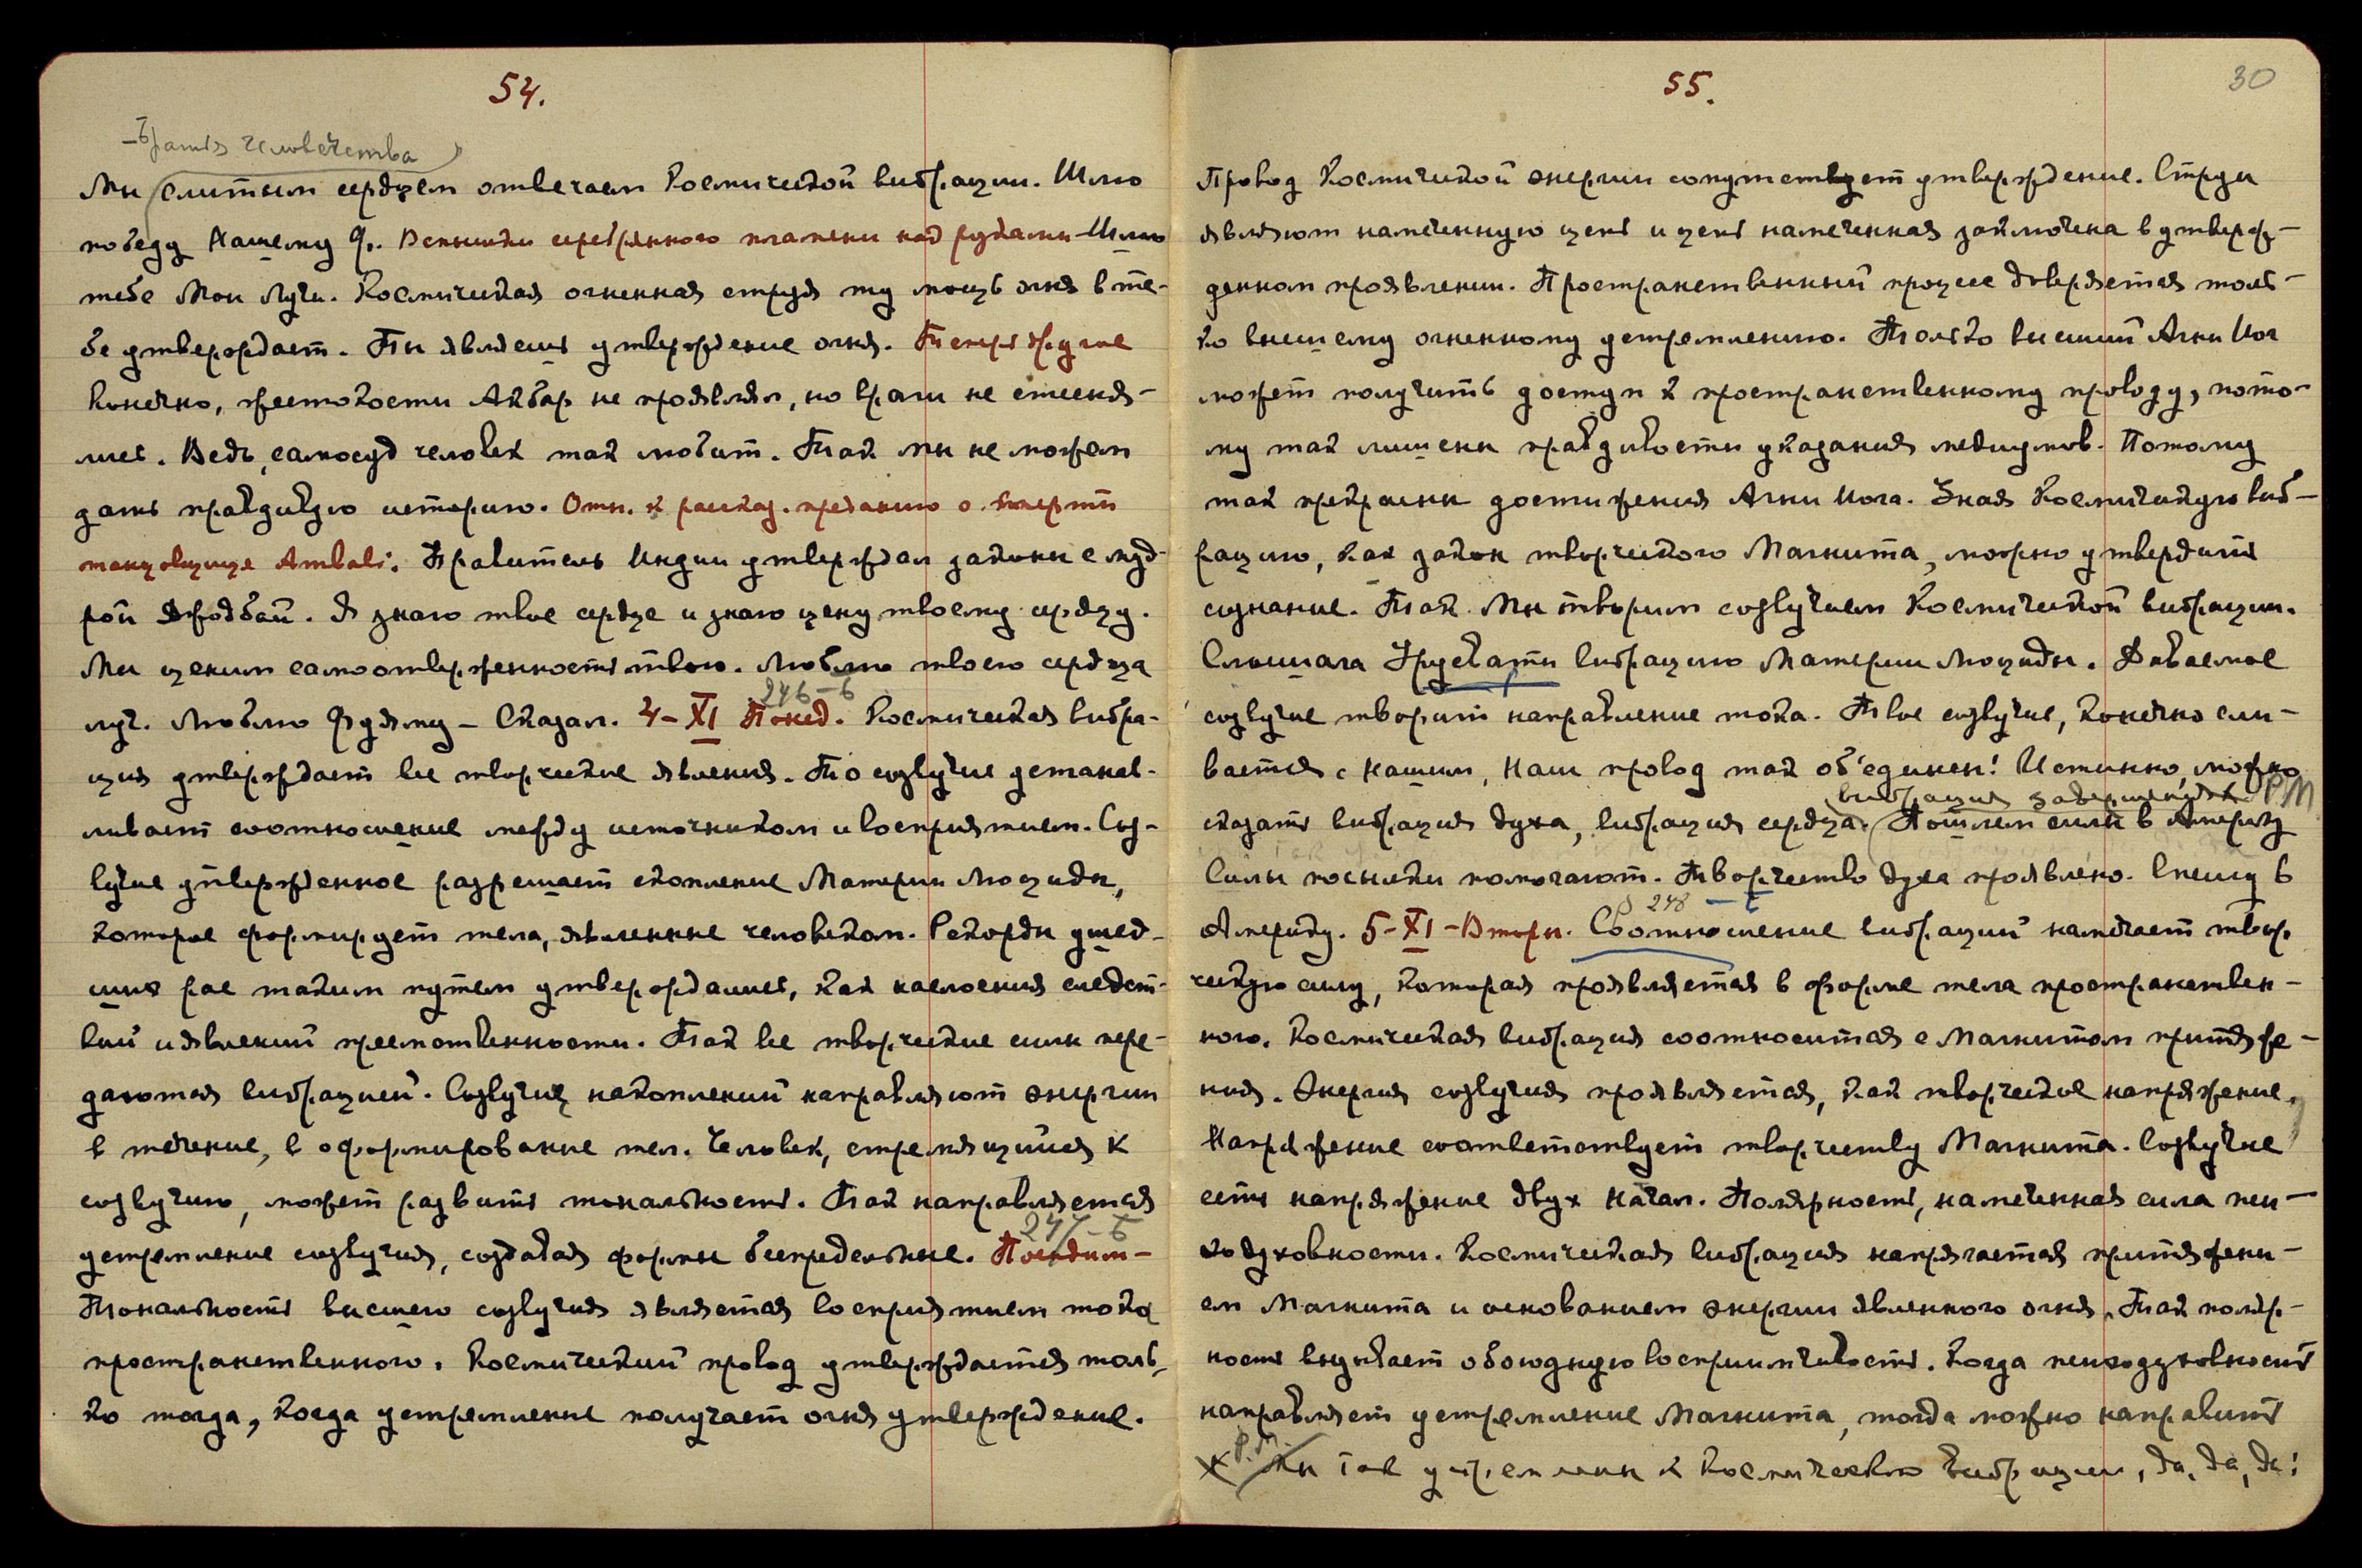 54.
–Братья человечества
Мы слитым сердцем отвечаем Космической вибрации. Шлю
победу Нашему Ф. Вспышки серебрянного пламени над руками – Шлю
тебе Мои Лучи. Космическая огненная струя ту мощь огня в те-
бе утверждает. Ты являешь утверждение огня.
Конечно, жестокости Акбар не проявлял, но враги не стесня-
лись. Ведь, самосуд человек так любит. Так мы не можем
дать правдивую историю. Отн. к рассказ. преданию о смерти
танцовщице Ambali. Правитель Индии утверждал законы с муд-
рой Джодбай. Я знаю твое сердце и знаю цену твоему сердцу.
Мы ценим самоотверженность твою. Люблю твоего сердца
луч. Люблю Фуяму – Сказал. 4–XI Понед. Космическая вибра-
246–б
ция утверждает все творческие явления. То созвучие устанав-
ливает соотношение между источником и восприятием. Соз-
вучие утвержденное разрешает скопление Материи Люциды,
которое формирует тела, явленные человеком. Рекорды ушед-
ших рас таким путем утверждались, как наслоения следст-
вий и явлений преемственности. Так все творческие силы пере-
даются вибрацией. Созвучия накоплений направляют энергии
в течение, в оформирование тел. Человек, стремящийся к
созвучию, может развить тональность. Так направляется
247–б
устремление созвучия, создавая формы беспредельные.
Тональность высшего созвучия является восприятием тока
пространственного. Космический провод утверждается толь-
ко тогда, когда устремление получает огня утверждение.
55.
30
Провод Космической энергии сопутствует утверждение. Струи
являют намеченную цепь и цепь намеченная заключена в утверж-
денном проявлении. Пространственный процесс доверяется толь-
ко высшему огненному устремлению. Только высший Агни Йог
может получить доступ к пространственному проводу, пото-
му так лишены правдивости указания медиумов. Потому
так прекрасны достижения Агни Йога. Зная Космическую виб-
рацию, как закон творческого Магнита, можно утвердить
сознание. Так Мы творим созвучием Космической вибрации.
Слышала Урусвати вибрацию Материи Люциды. Даваемое
созвучие творит направление тока. Твое созвучие, конечно сли-
вается с нашим, Наш провод так об'единен! Истинно, можно
вибрация завершения Р.М
сказать вибрация духа, вибрация сердца. Пошлем силы в Америку
Силы посылки помогают. Творчество духа проявлено. Спешу в
248 – б
Америку. 5–XI–Вторн. Соотношение вибраций намечает твор.
ческую силу, которая проявляется в форме тела пространствен-
ного. Космическая вибрация соотносится с Магнитом притяже-
ния. Энергия созвучия проявляется, как творческое напряжение.
Напряжение соответствует творчеству Магнита. Созвучие
есть напряжение двух Начал. Полярность, намеченная сила пси-
ходуховности. Космическая вибрация напрягается притяжени-
ем Магнита и основанием энергии явленного огня. Так поляр-
ность вызывает обоюдную восприимчивость. Когда психодуховность
направляет устремление Магнита, тогда можно направить
Р.М. Мы так устремлены к Космической вибрации, да, да, да!